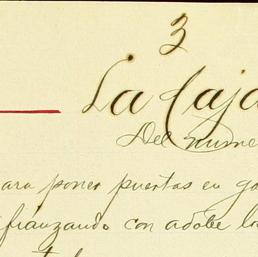 3
La Caja
Del nume
ara poner puertas en ga
afianzando con adobe la